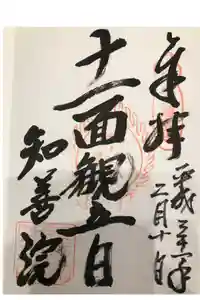 奉拝
平成三十年
月十日
十一面観音
知善院